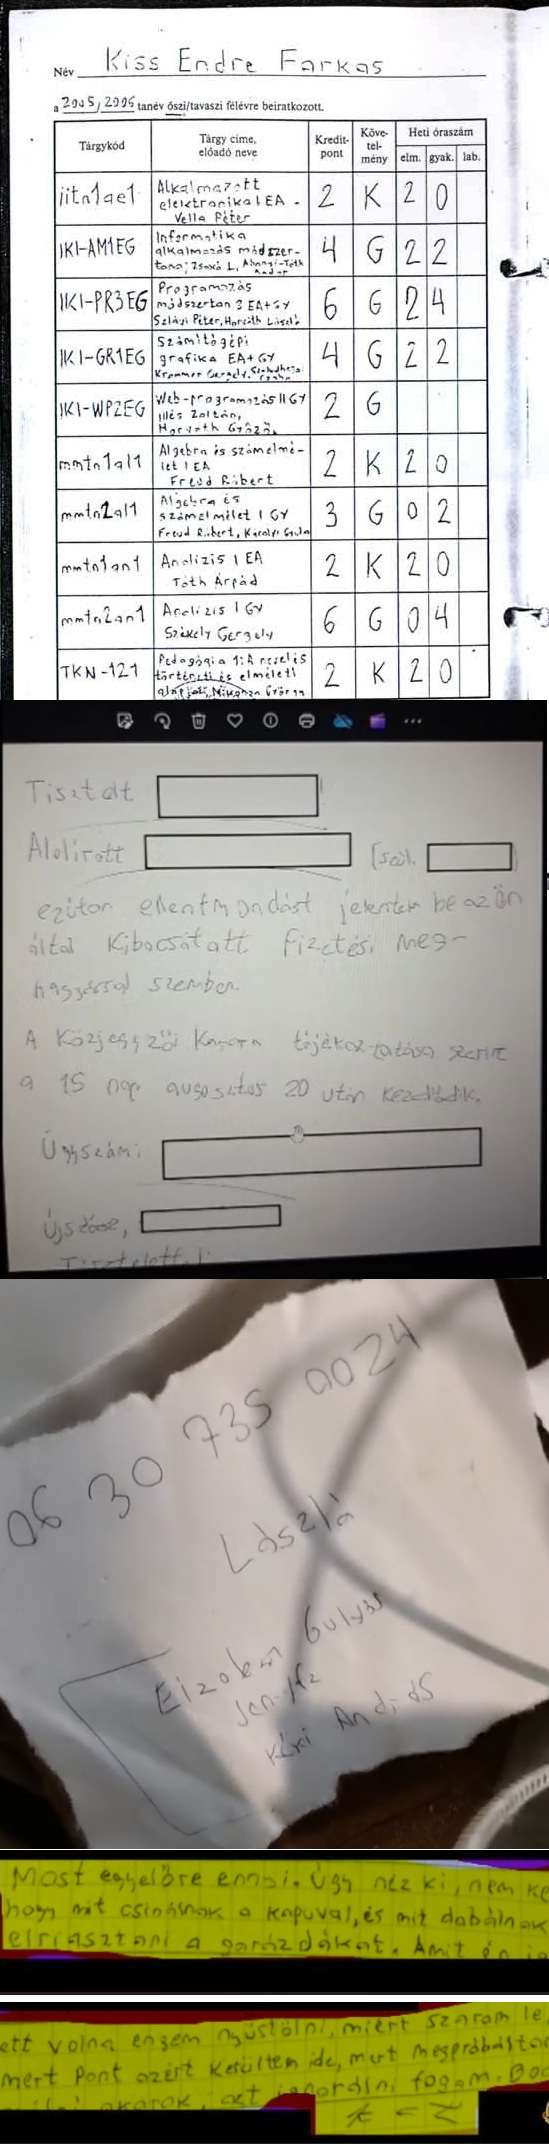 Név Kiss Endre Farkas
a 2005/2006 tanév őszi/tavaszi félévre beiratkozott.
Tárgykód Tárgy címe, előadó neve Kredit-pont Köve-tel-mény Heti óraszám elm. gyak. lab.
iitn1ae1 Alkalmazott elektronika I EA - Vella Péter 2 K 2 0
IKI-AM1EG Informatika alkalmazás módszer-tana; Zsakó L. 4 G 2 2
IKI-PR3EG Programozás módszertan 3 EA+GY Szlávi Péter, Horváth László 6 G 2 4
IKI-GR1EG Számítógépi grafika EA+GY Krammer Gergely 4 G 2 2
IKI-WP2EG Web-programozás II GY Illés Zoltán, Horváth Győző 2 G
mmtn1al1 Algebra és számelmé-let I EA Freud Róbert 2 K 2 0
mmtn2al1 Algebra és számelmélet I GY Freud Róbert, Károlyi Gyula 3 G 0 2
mmtn1an1 Analízis I EA Tóth Árpád 2 K 2 0
mmtn2an1 Analízis I GY Székely Gergely 6 G 0 4
TKN-121 Pedagógia 1: A nevelés történeti és elméleti alapjai 2 K 2 0
Tisztelt
Alolírott (szül.
ezúton ellentmondást jelentek be az ön
által kibocsátott fizetési meg-
hagyással szemben.
A Közjegyzői Kamara tájékoztatása szerint
a 15 nap augusztus 20 után kezdődik.
Ügyszám:
Újszász,
Tisztelettel:
06 30 735 0024
László
Elzolem Gulyás
Jennifz
Kéri András
Most egyelőre ennyi. Úgy néz ki, nem ke
hogy mit csinálnak a kapuval, és mit dobálnak
elriasztani a garázdákat. Amit én
ett volna engem nyüstölni, miért szarom le,
mert pont azért kerültem ide, mert megpróbálta
akarok, azt ignorálni fogom.